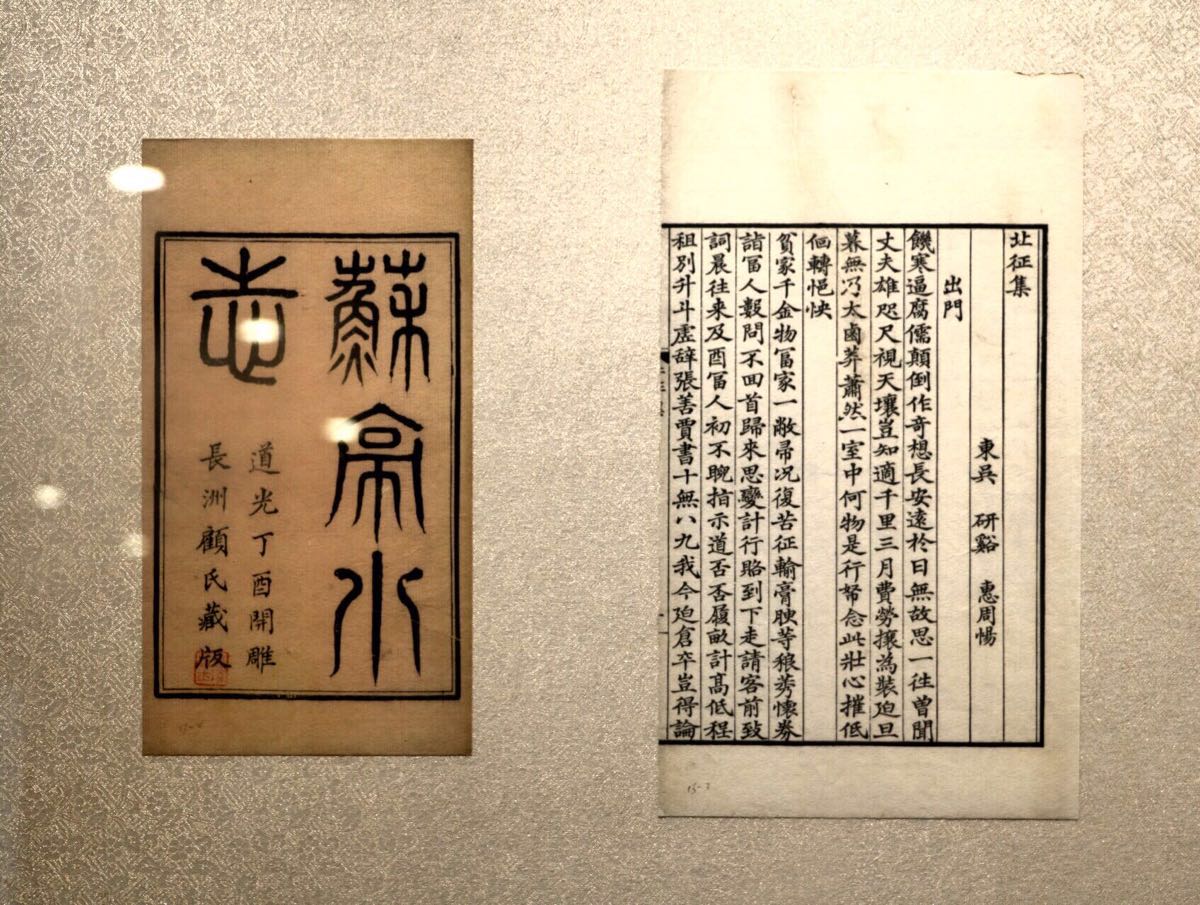 北征集
東吳 研谿 惠周惕
出門
饑寒逼腐儒顛倒作奇想長安遠於日無故思一往曾聞
丈夫雄咫尺視天壤豈知適千里三月費勞攘為裝迫旦
暮無乃太鹵莽蕭然一室中何物是行帑念此壯心摧低
佪轉悒怏
貧家千金物冨家一敝帚况復苦征輸膏腴等稂莠懷券
詣冨人數問不回首歸來思變計行賂到下走請客前致
詞晨往来及酉冨人初不睨指示道否否履畝計髙低程
租別升斗虛辞張善賈書十無八九我今迫倉卒豈得論
蘇亭小
志
道光丁酉開雕
長洲顧氏藏版